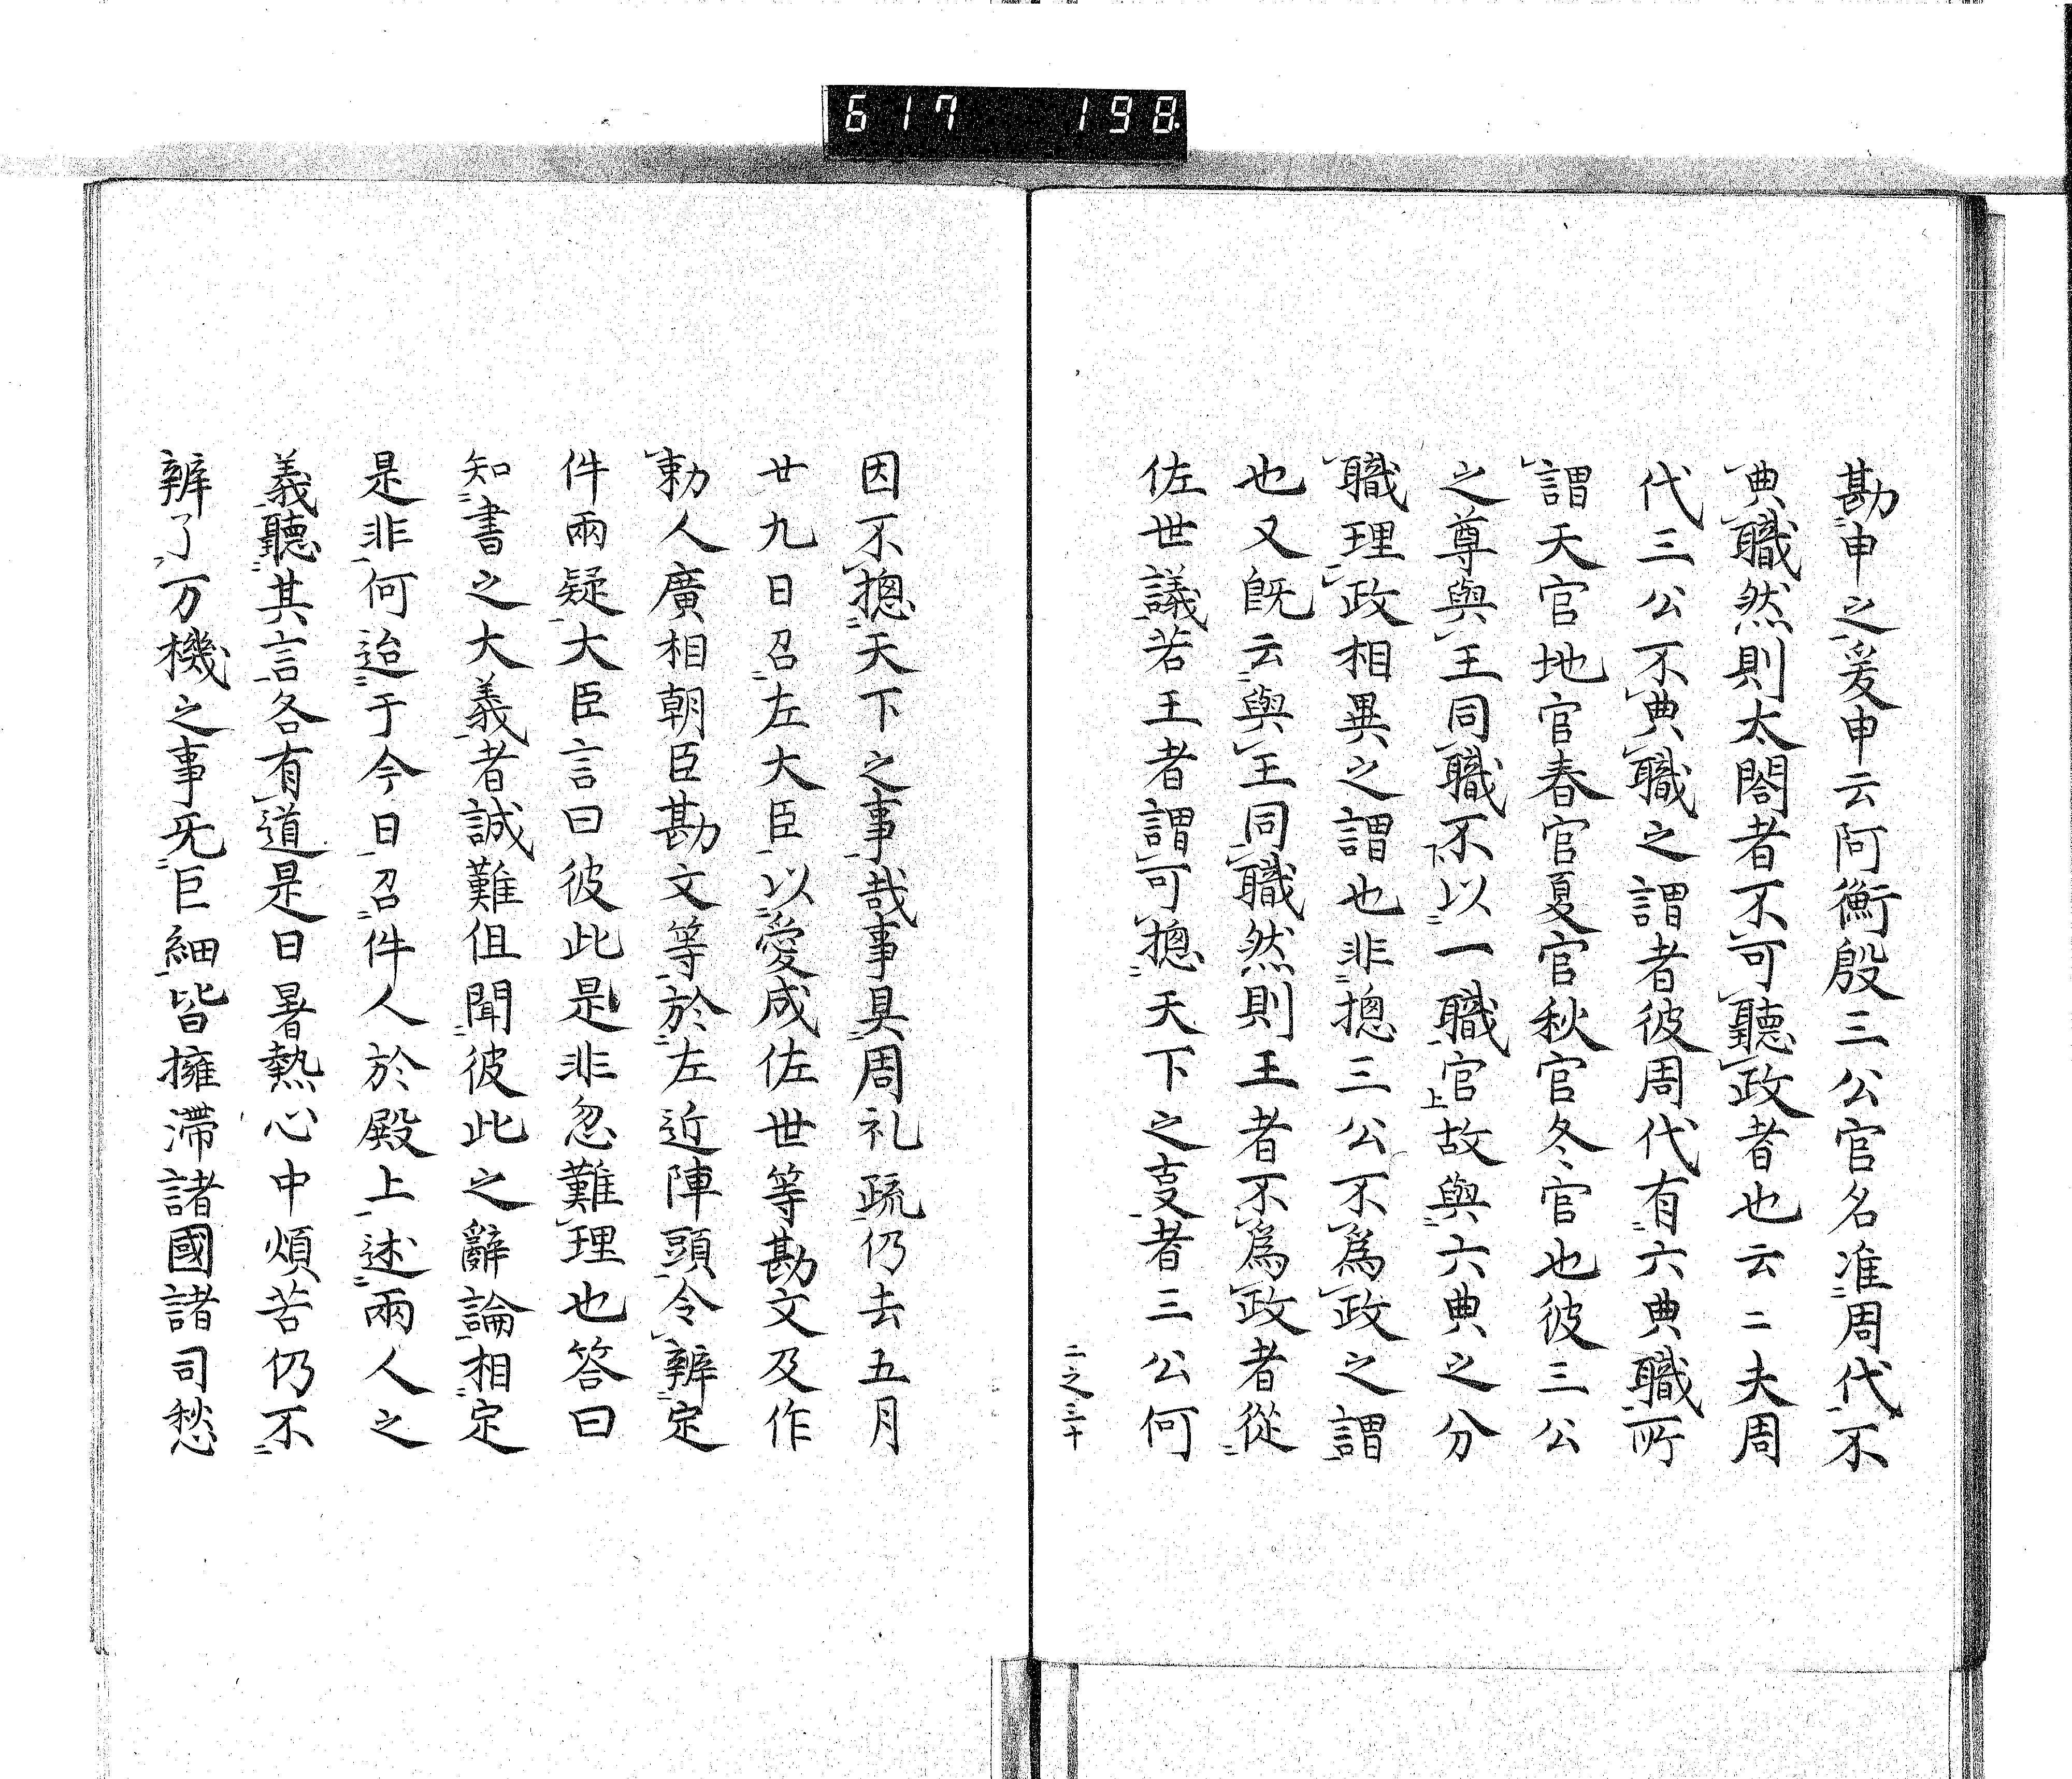 617 198.
勘申之爰申云阿衡殷三公官名准周代不
典職然則太閤者不可聽政者也云二夫周
代三公不典職之謂者彼周代有六典職所
謂天官地官春官夏官秋官冬官也彼三公
之尊與王同職不以一職官故與六典之分
職理政相異之謂也非摠三公不爲政之謂
也又既云與王同職然則王者不爲政者從
佐世議若王者謂可摠天下之㕝者三公何
二之三十
因不摠天下之事哉事具周礼疏仍去五月
廿九日召左大臣以愛成佐世等勘文及作
勅人廣相朝臣勘文等於左近陣頭令辨定
件兩疑大臣言曰彼此是非忽難理也答曰
知書之大義者誠難但聞彼此之辭論相定
是非何迨于今日召件人於殿上述兩人之
義聽其言各有道是日暑熱心中煩苦仍不
辨了万機之事无巨細皆擁滯諸國諸司愁